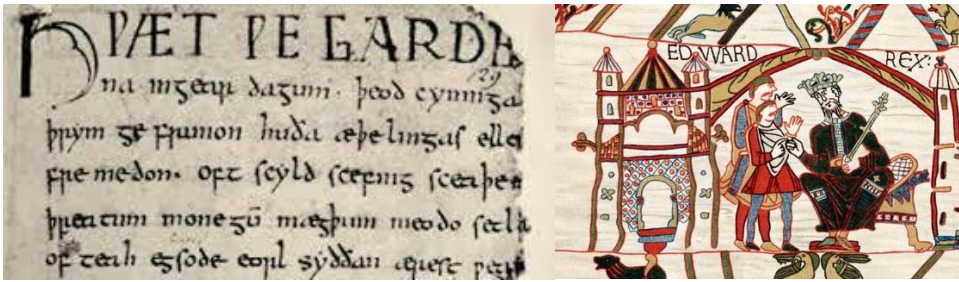 HǷÆT ǷE GARDE
na ingear dagum. þeod cyninga
þrym ge frunon huða æþelingas elle
fre medon. oft scyld scefing sceaþe
þreatum monegū mægþum meodo setla
of teah egsode eorl syððan ærest ƿear
EDWARD REX: